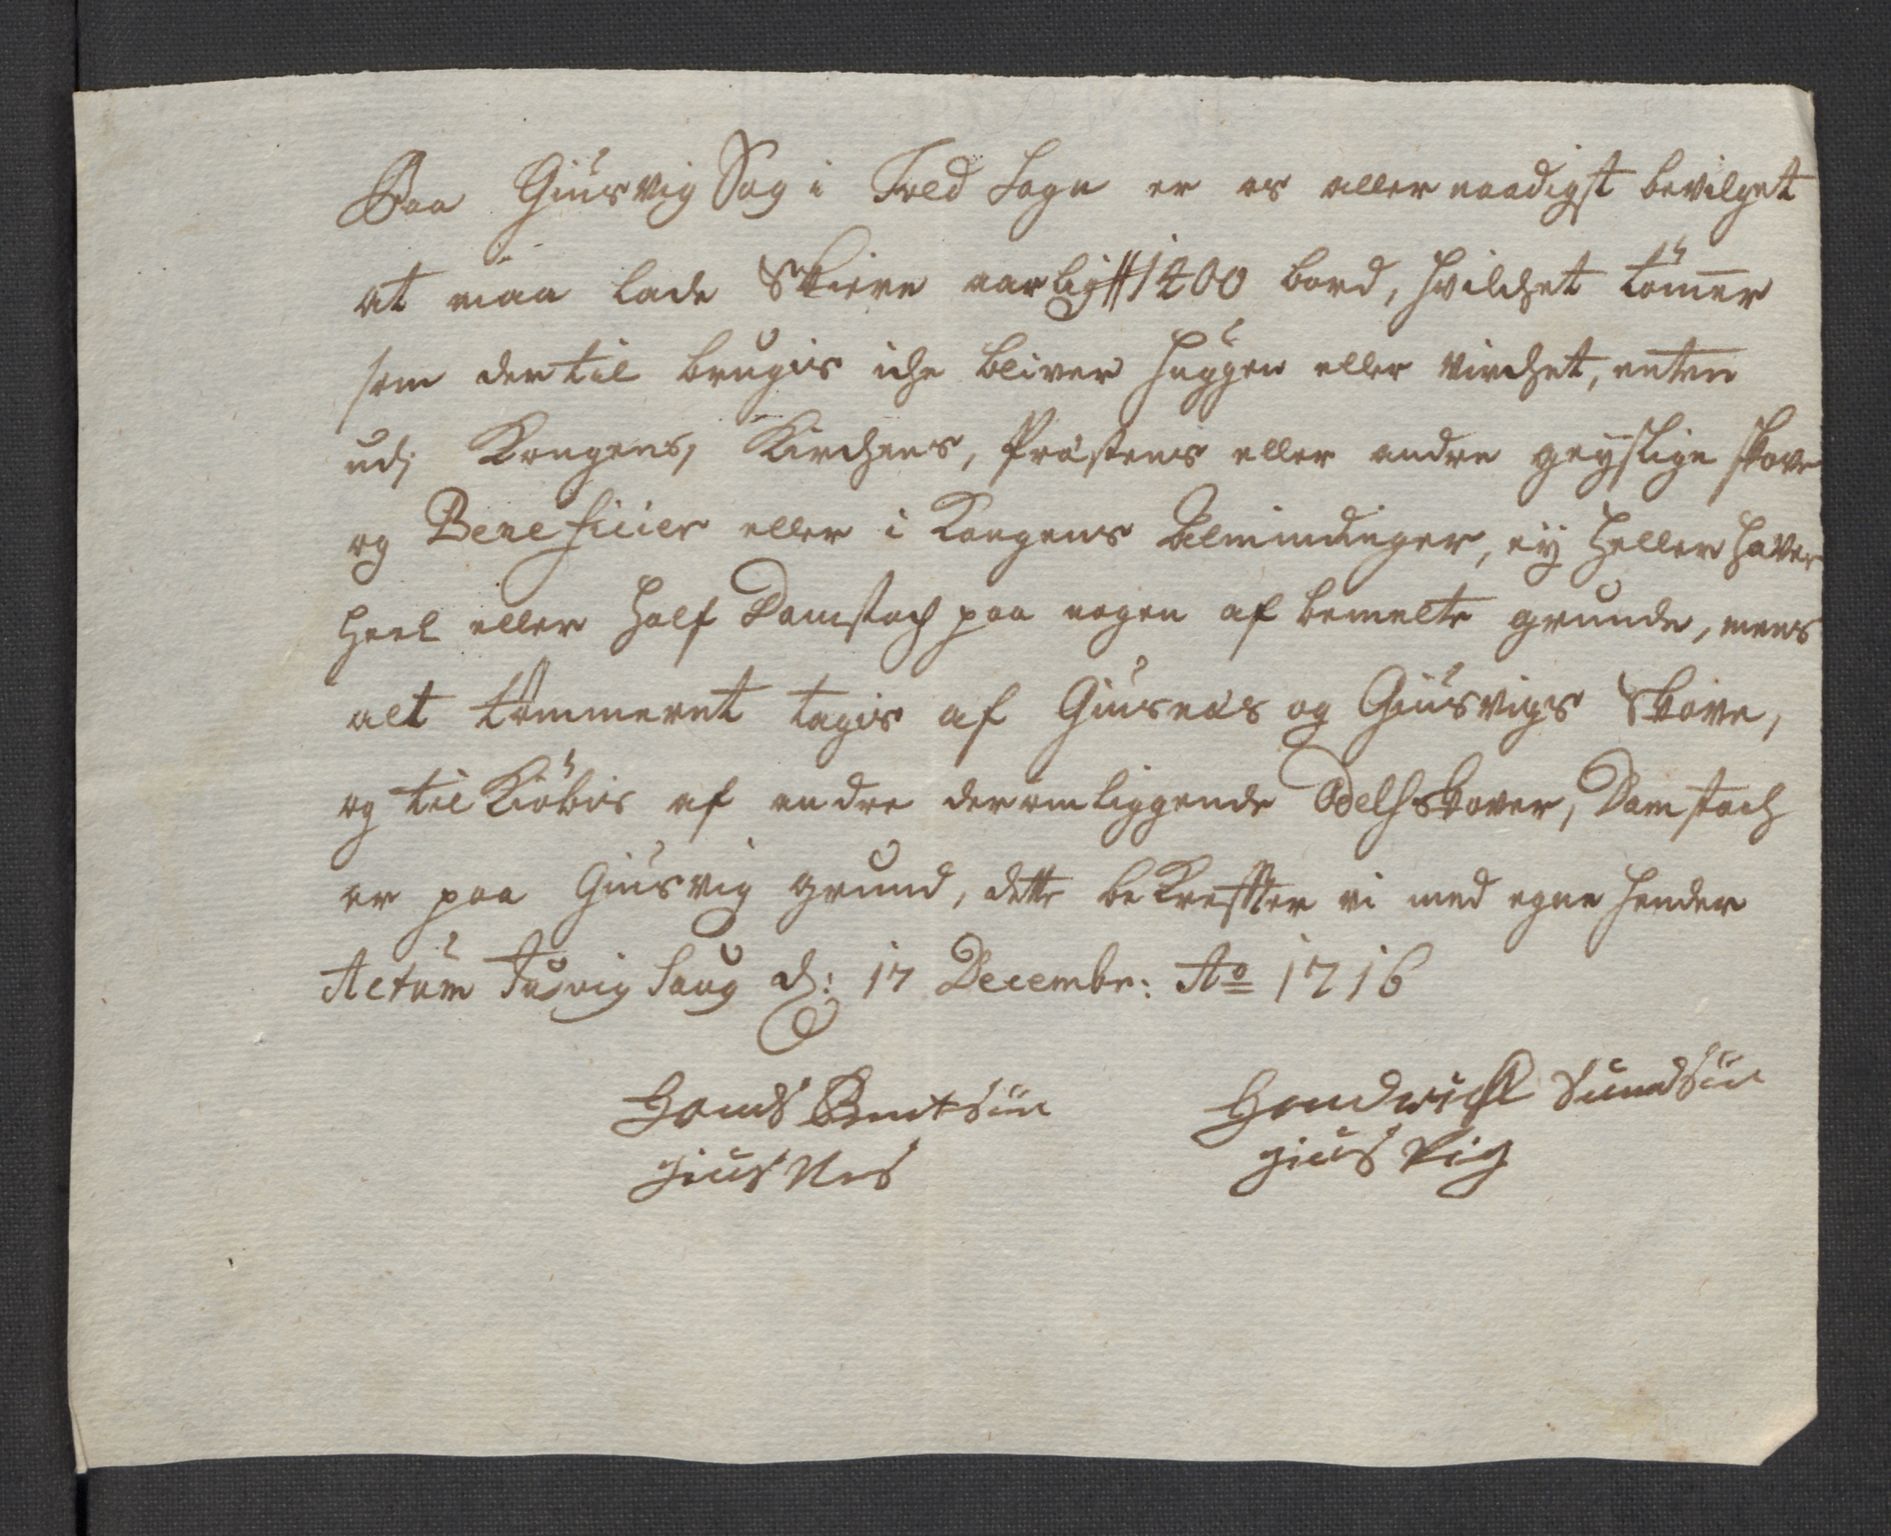 Paa Giusvig Sag i Fold Sogn er os aller naadigst bevilget
at maa lade Skiere aarlig 1400 bord, hvilchet tömer
som der til brugis iche bliver huggen eller virchet, enten
udj Kongens, Kirchens, Præstens eller andre geystlige skove
og Beneficier eller i Kongens Almindinger, ey heller haver
heel eller half Damstoch paa nogen af bemelte grunde, mens
alt tömmeret tagis af Giusnæs og Giusvigs Skove,
og til Kiöbis af andre deromliggende Odelsskover, Damstoch
er paa Giusvig grund, dette bekreffter vi med egne hender
Actum Jusvig Saug d: 17 Decembr: Ao 1716
Hans Bentsön Hendrich Sundsön
Gius Nes Gius Vig